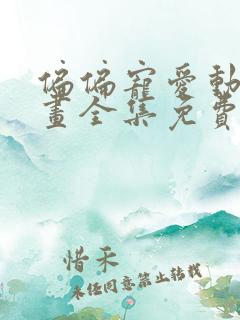 偏偏寵愛動
畫全集免費
惜禾
未任同意禁止转载